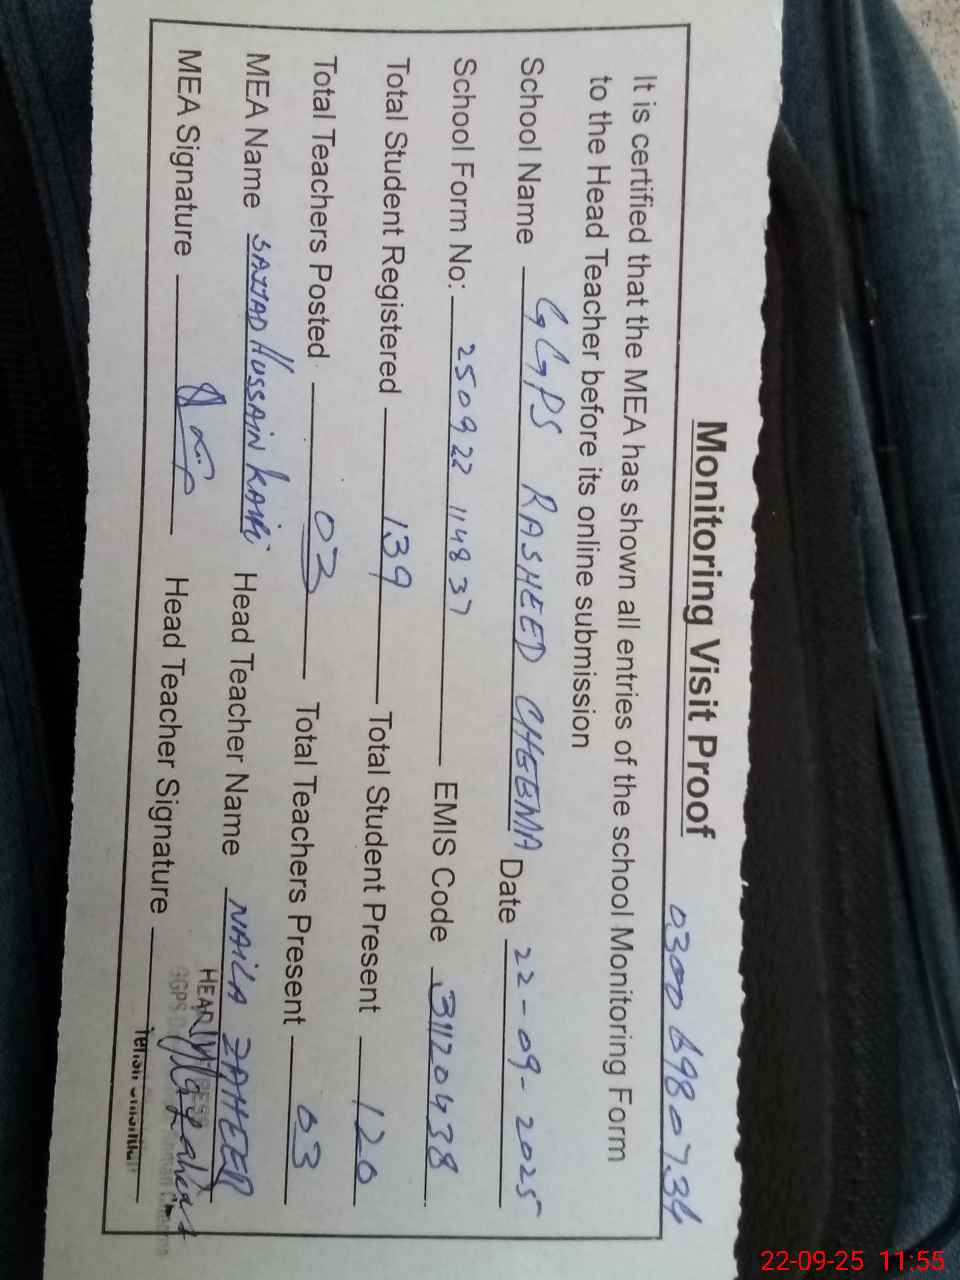 Monitoring Visit Proof
0300 6980734
It is certified that the MEA has shown all entries of the school Monitoring Form
to the Head Teacher before its online submission
School Name GGPS RASHEED CHEEMA Date 22-09-2025
School Form No: 250922 114837 EMIS Code 31120438
Total Student Registered 139 Total Student Present 120
Total Teachers Posted 03 Total Teachers Present 03
MEA Name SAJJAD HUSSAIN Head Teacher Name NAILA ZAHEER
MEA Signature Head Teacher Signature
HEAD
GGPS
22-09-25 11:55